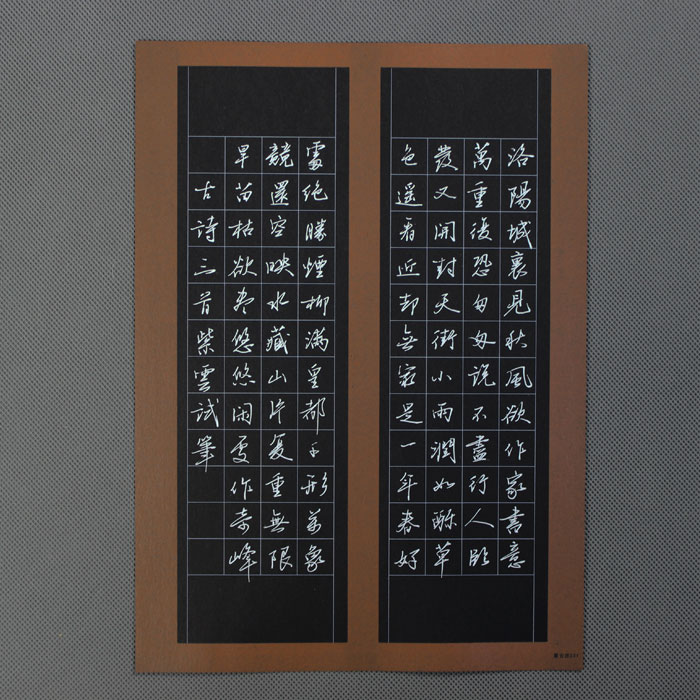 洛陽城裏見秋風欲作家書意
萬重復恐匆匆說不盡行人臨
發又開封天街小雨潤如酥草
色遥看近却無最是一年春好
處絕勝煙柳滿皇都千形萬象
競還空映水藏山片复重無限
旱苗枯欲盡悠悠閑處作奇峰
古詩三首紫雲試筆